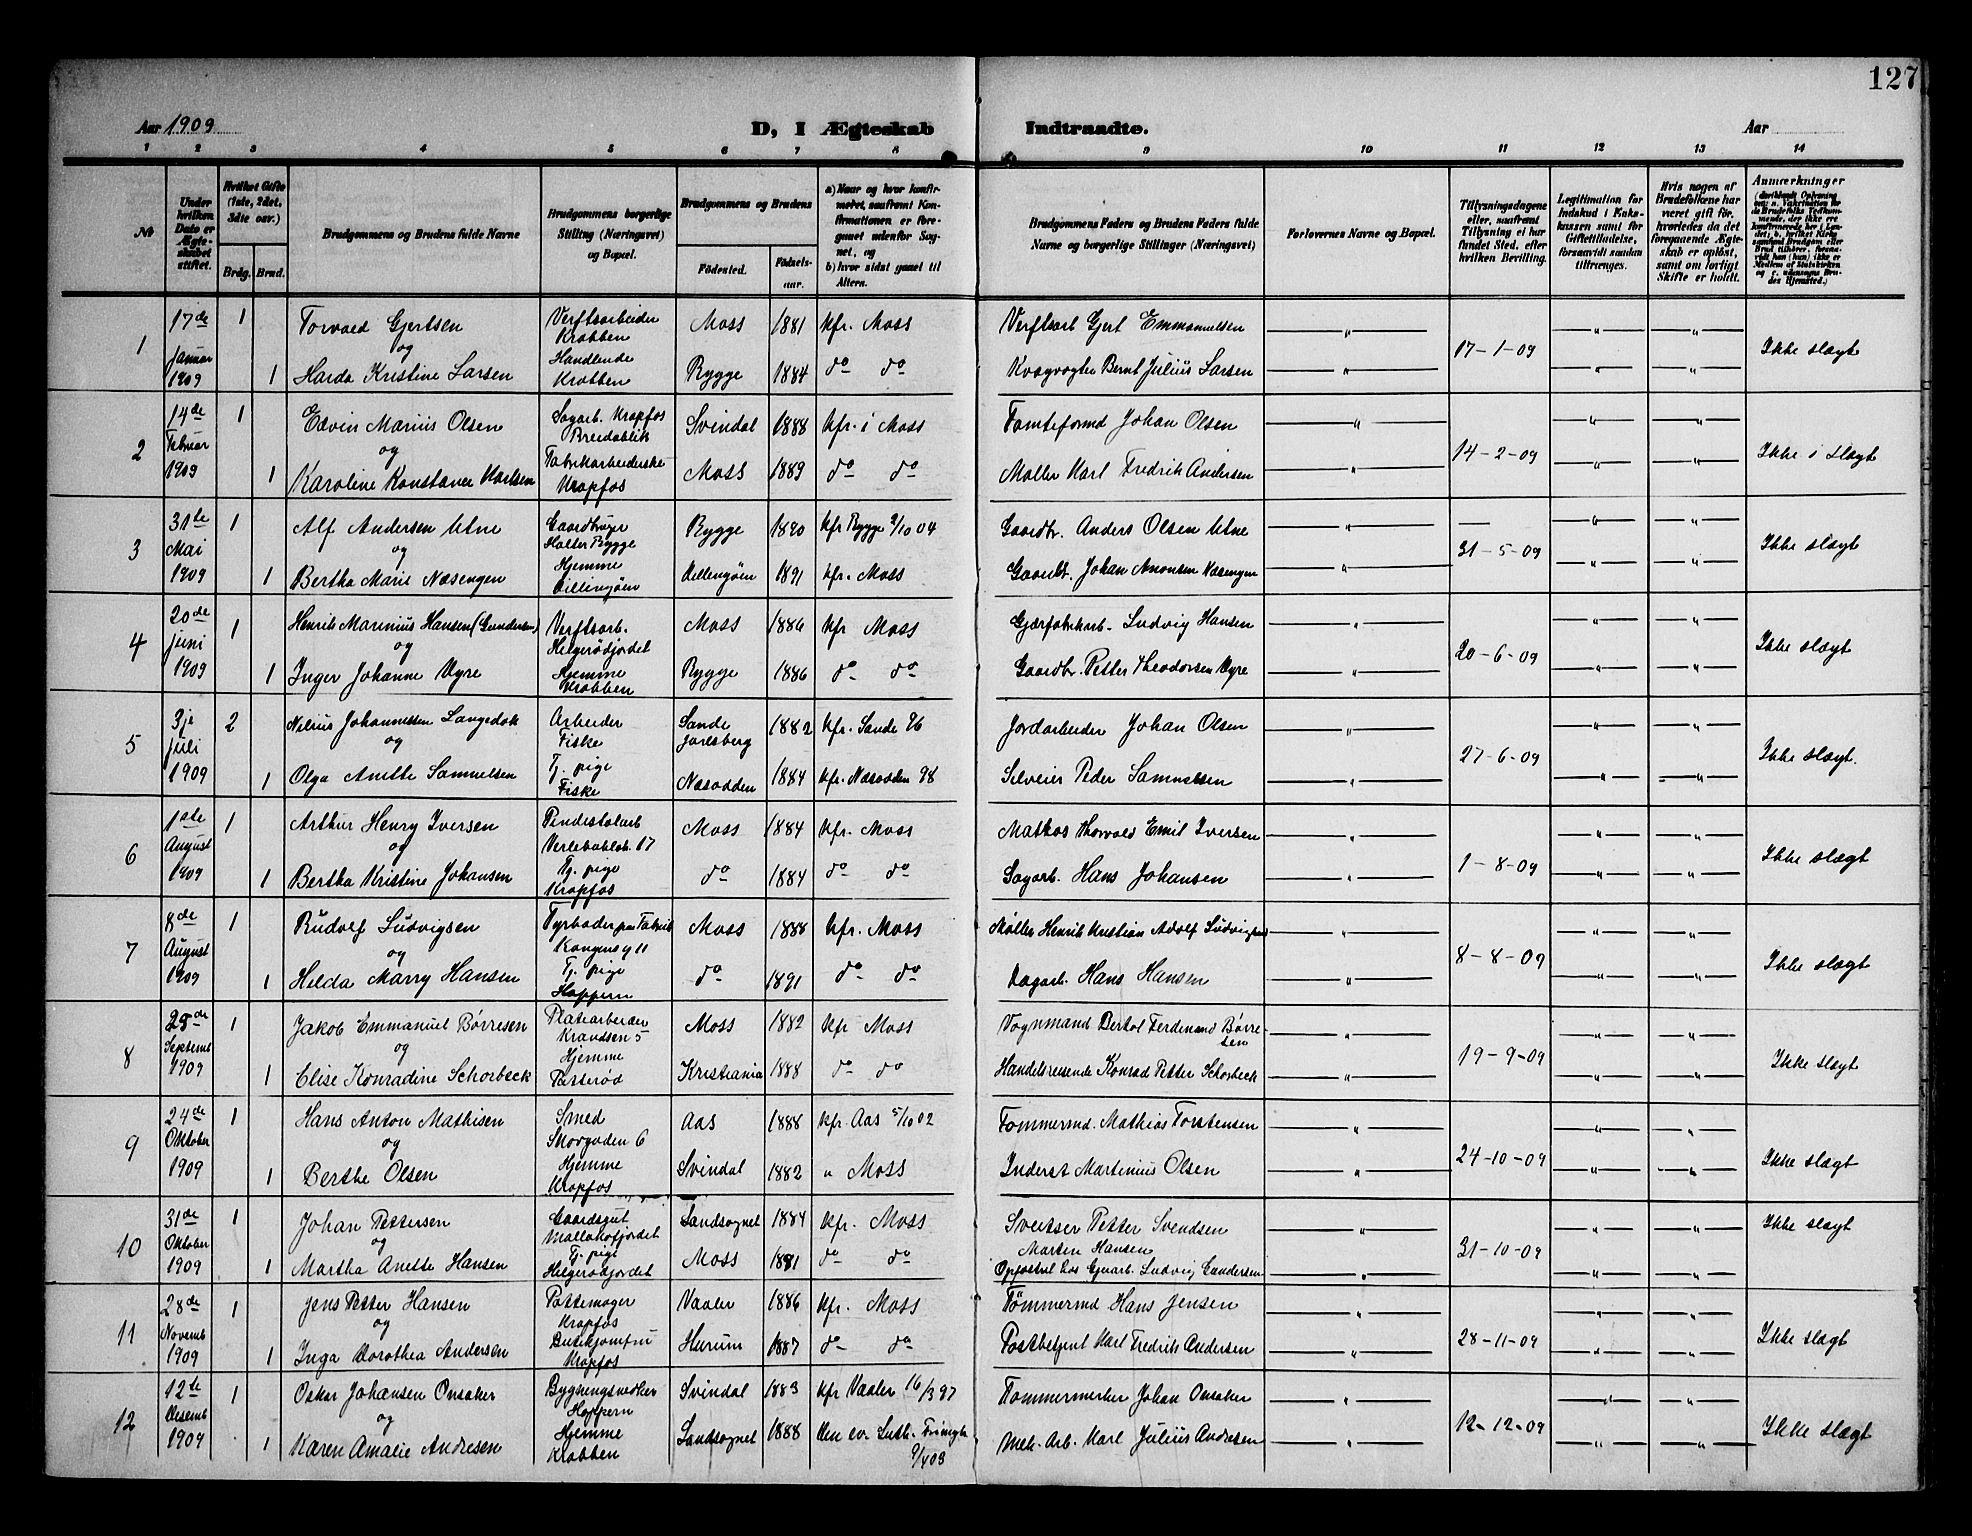 127
Aar 1909
D, I Ægteskab Indtraadte.
Aar
1 2 3 4 5 6 7 8 9 10 11 12 13 14
No
Under hvilken Dato er Ægteskabet stiftet.
Hvilket Gifte (1ste, 2det, 3die osv.)
Brdg. Brud.
Brudgommens og Brudens fulde Navne
Brudgommens borgerlige Stilling (Næringsvei) og Bopæl.
Brudgommens og Brudens
Fødested. Fødselsaar.
a) Naar og hvor konfirmeret, saafremt Konfirmationen er foregaaet udenfor Sognet, og
b) hvor sidst gaaet til Alters.
Brudgommens Faders og Brudens Faders fulde Navne og borgerlige Stillinger (Næringsvei)
Forlovernes Navne og Bopæl.
Tillysningsdagene eller, saafremt Tillysning ei har fundet Sted, efter hvilken Bevilling.
Legitimation for Indskud i Enkekassen samt for Giftetilladelse, forsaavidt saadan tiltrænges.
Hvis nogen af Brudefolkene har været gift før, hvorledes da det foregaaende Ægteskab er opløst, samt om lovligt Skifte er holdt.
Anmærkninger
1 17de Januar 1909 1 Torvald Gjertsen Verftsarbeider Krabben Moss 1881 Kfr. Moss Verftsarb Gjert Emmanuelsen " 17-1-09 " " Ikke slægt
og
1 Harda Kristine Larsen Handlende Krabben Rygge 1884 do do Kvægvogter Bernt Julius Larsen " " "
2 14de Februar 1909 1 Edvin Marius Olsen Sagarb. Krapfos Breidablik Svindal 1888 Kfr. i Moss Tomteformd Johan Olsen " 14-2-09 " " Ikke i slægt
og
1 Karoline Konstance Karlsen Fabrikarbeiderske Krapfos Moss 1889 do do Møller Karl Fredrik Andersen " " "
3 31te Mai 1909 1 Alf Andersen Utne Gaardbruger Halter Rygge Rygge 1880 Kfr Rygge 2/10 04 Gaardbr. Anders Olsen Utne " 31-5-09 " " Ikke slægt
og
1 Bertha Marie Næsengen Hjemme Dillingøen Dillingøen 1891 Kfr. Moss Gaardbr. Johan Amonsen Næsengen " " "
4 20de Juni 1909 1 Henrik Marinius Hansen (Gundersen) Verftsarb. Helgerødjordet Moss 1886 Kfr Moss Gjærfabrikarb. Ludvig Hansen " 20-6-09 " " Ikke slægt
og
1 Inger Johanne Dyre Hjemme Krabben Rygge 1886 do do Gaardbr. Petter Theodorsen Dyre " " "
5 3je Juli 1909 2 Nilius Johannessen Langedok Arbeider Fiske Sande Jarlsberg 1882 Kfr. Sande 96 Jordarbeider Johan Olsen " 27-6-09 " " Ikke slægt.
og
1 Olga Anette Samuelsen Tj. pige Fiske Næsodden 1884 Kfr. Næsodden 98 Selveier Peder Samuelsen " " "
6 1ste August 1909 1 Arthur Henry Iversen Moss 1884 Kfr. Moss Matros Thorvald Emil Iversen " 1-8-09 " " Ikke slægt
og
1 Bertha Kristine Johansen Tj. pige Krapfos do 1884 do do Sagarb. Hans Johansen " " "
7 8de August 1909 1 Rudolf Ludvigsen Fyrbøder paa Fabrik Kongensg 11 Moss 1888 Kfr. Moss Møller Henrik Kristian Adolf Ludvigsen " 8-8-09 " " Ikke slægt
og
1 Hilda Marry Hansen Tj. pige Hoppern do 1891 do do Dagarb. Hans Hansen " " "
8 25de Septemb 1909 1 Jakob Emmanuel Børresen Platearbeider Krandsen 5 Moss 1882 Kfr Moss Vognmand Bertol Ferdinand Børresen " 19-9-09 " " Ikke slægt
og
1 Elise Konradine Schorbeck Hjemme Patterød Kristiania 1888 do do Handelsreisende Konrad Petter Schorbeck " " "
9 24de Oktober 1909 1 Hans Anton Mathisen Smed Skovgaden 6 Aas 1888 Kfr. Aas 5/10 02 Tømmermd. Mathias Torstensen " 24-10-09 " " Ikke slægt
og
1 Berthe Olsen Hjemme Krapfos Svindal 1882 " Moss Inderst Martinius Olsen " " "
10 31de Oktober 1909 1 Johan Pettersen Gaardsgut Mallakofjordet Landsognet 1884 Kfr. Moss Sveitser Petter Svendsen " 31-10-09 " " Ikke slægt
og
1 Martha Anette Hansen Tj. pige Helgerødjordet Moss 1881 do do Morten Hansen Opfostret hos Gjærarb. Ludvig Gundersen " " "
11 28de Novemb 1909 1 Jens Petter Hansen Pottemager Krapfos Vaaler 1886 Kfr. Moss Tømmermd Hans Jensen " 28-11-09 " " Ikke slægt
og
1 Inga Dorothea Andersen Butikjomfru Krapfos Hurum 1887 do do Postbetjent Karl Fredrik Andersen " " "
12 12te Desemb 1909 1 Oskar Johansen Onsaker Bygningssnedker Hoppern Svindal 1883 Kfr Vaaler 16/3 97 Tømmermerker Johan Onsaker " 12-12-09 " " Ikke slægt
og
1 Karen Amalie Andresen Hjemme Krabben Landsognet 1888 Den ev. Luth. Frimgh 9/4 03 Mek. Arb. Karl Julius Andresen " " "